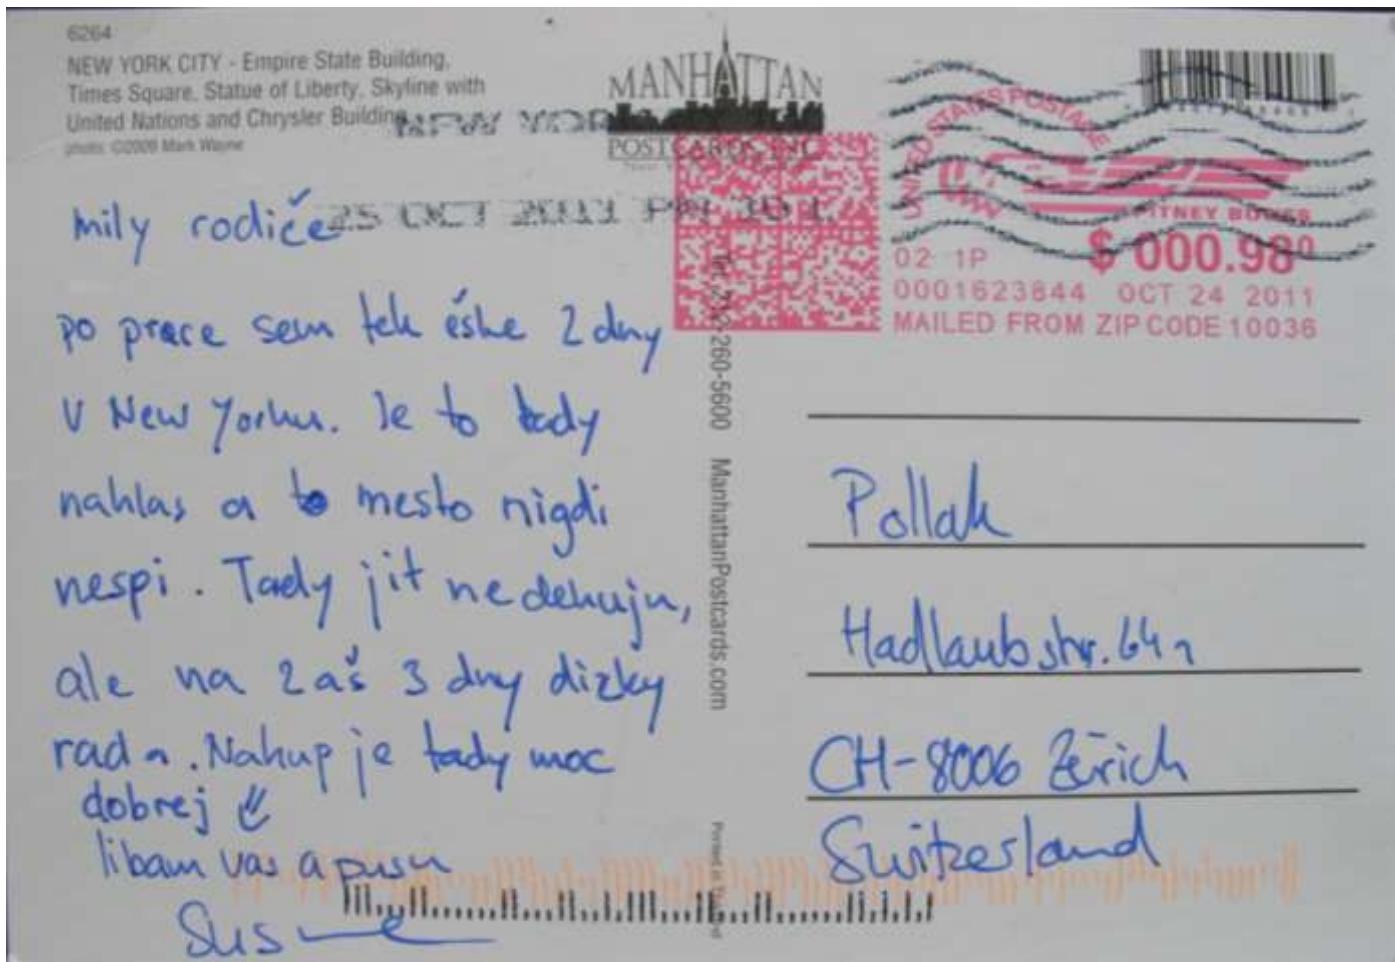 6264
NEW YORK CITY - Empire State Building,
Times Square, Statue of Liberty, Skyline with
United Nations and Chrysler Building
photo: ©2009 Mark Wayne
MANHATTAN
POSTCARDS INC
NEW YOR
25 OCT 2011 PM
UNITED STATES POSTAGE
PITNEY BOWES
02 1P
$ 000.98⁰
0001623844 OCT 24 2011
MAILED FROM ZIP CODE 10036
mily rodiče
po prace sem tek éshe 2 dny
v New Yorku. Je to tady
nahlas a to mesto nigdi
nespi. Tady jit nedehuju,
ale na 2 aš 3 dny dizky
rada. Nahup je tady moc
dobrej
libam vas a pusu
260-5600 ManhattanPostcards.com
Pollak
Hadlaubstr. 64a
CH-8006 Zürich
Switzerland